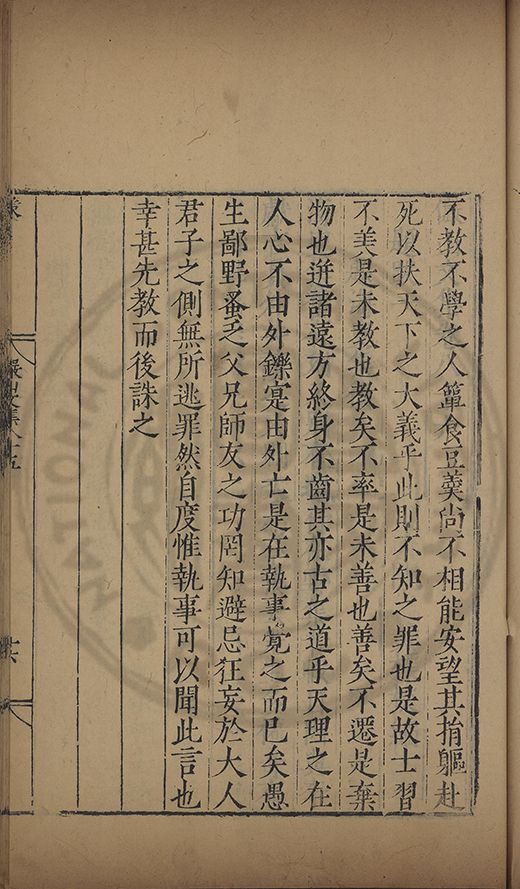 不教不學之人簞食豆羹尚不相能安望其捐軀赴
死以扶天下之大義乎此則不知之罪也是故士習
不美是未教也教矣不率是未善也善矣不遷是棄
物也迸諸遠方終身不齒其亦古之道乎天理之在
人心不由外鑠寔由外亡是在執事覺之而已矣愚
生鄙野蚤乏父兄師友之功罔知避忌狂妄於大人
君子之側無所逃罪然自度惟執事可以聞此言也
幸甚先教而後誅之